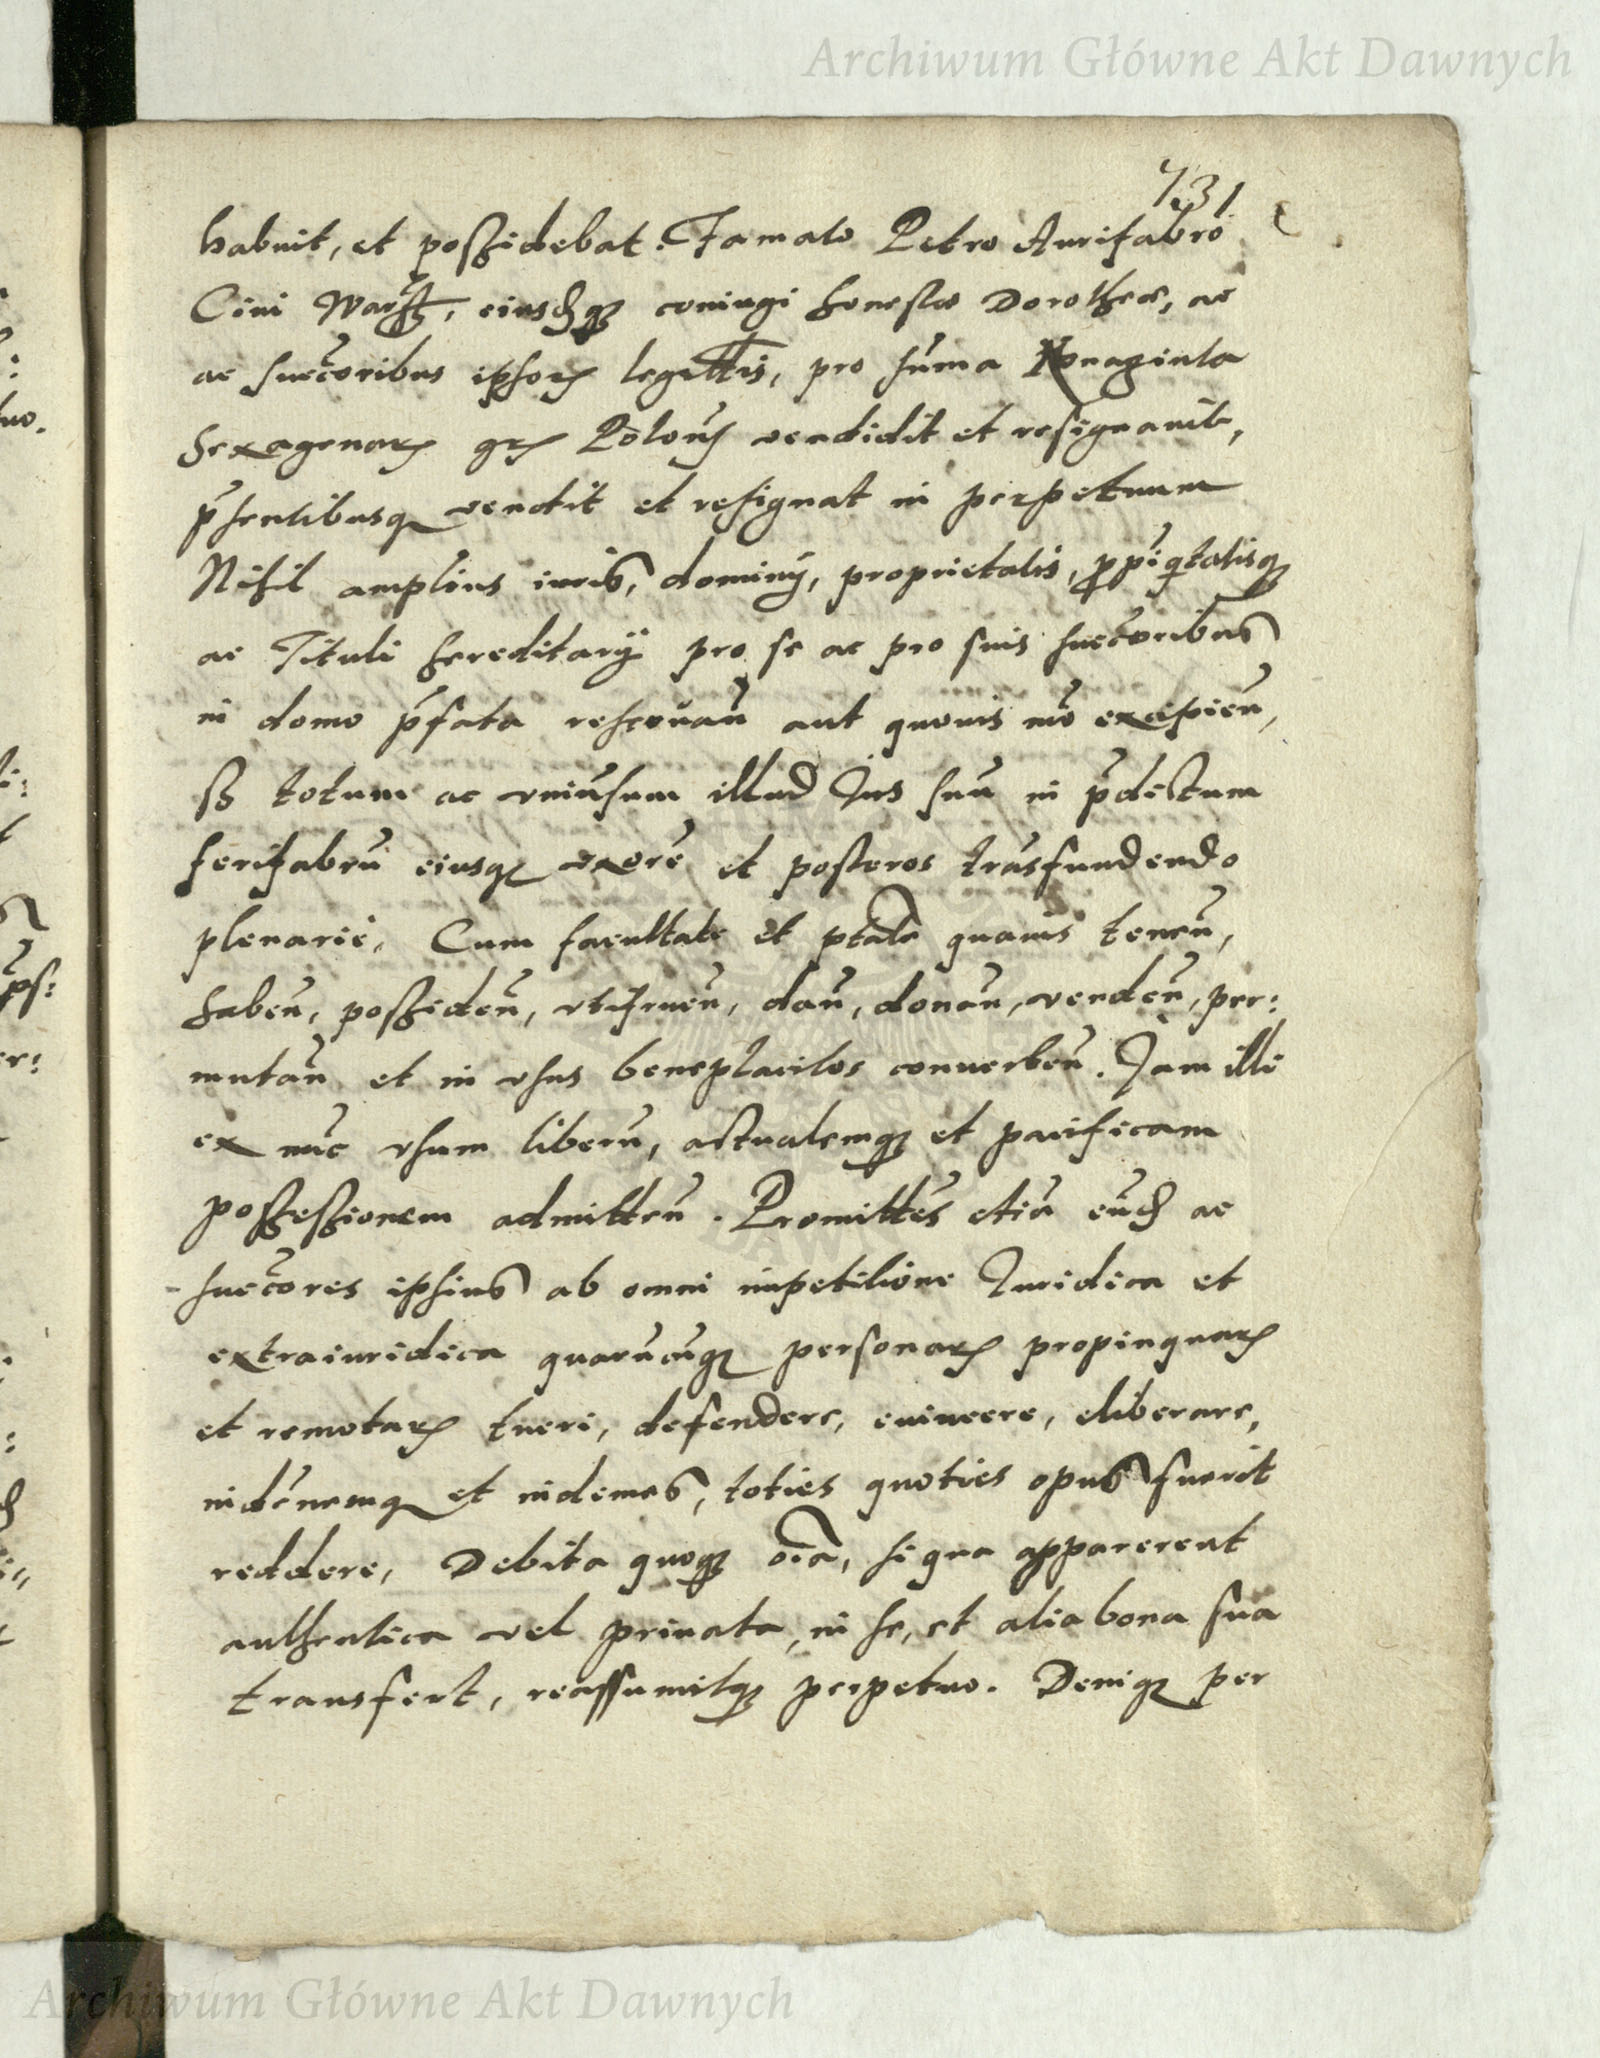 Archiwum Główne Akt Dawnych
731
habuit, et possidebat. Famato Petro Aurifabro
Ciui Warss, eiusdqȝ coniugi honestæ Dorotheæ, ac
ac succoribus ipsorꝝ legittis, pro suma Nonaginta
sexagenarꝝ grꝝ Polon vendidit et resignauit,
psentibusqȝ vendit et resignat in perpetuum
Nihil amplius iuris, dominij, proprietatis, ppiqtatisqȝ
ac Tituli hereditarij pro se ac pro suis succoribus
in domo pfata reseruan aut quouis mo excipien,
sȝ totum ac vniusum illud Jus suu in pdictum
ferifabru eiusqȝ vxore et posteros trasfundendo
plenarie, Cum facultate et ptate quauis tenen,
haben, possiden, vtifruen, dan, donan, venden, per:
mutan et in vsus beneplacitos conuerten. Jam illi
ex nuc vsum liberu, actualemqȝ et pacificam
possessionem admitten. Promittes etia eund ac
succores ipsius ab omni impetitione Juridica et
extraiuridica quarucuqȝ personarꝝ propinquarꝝ
et remotarꝝ tueri, defendere, euincere, eliberare,
indenemqȝ et indemes, toties quoties opus fuerit
reddere, Debita quoqȝ oia, si qua apparerent
authentica vel priuata, in se, et alia bona sua
transfert, reassumitqȝ perpetuo. Deniqȝ per
Archiwum Główne Akt Dawnych